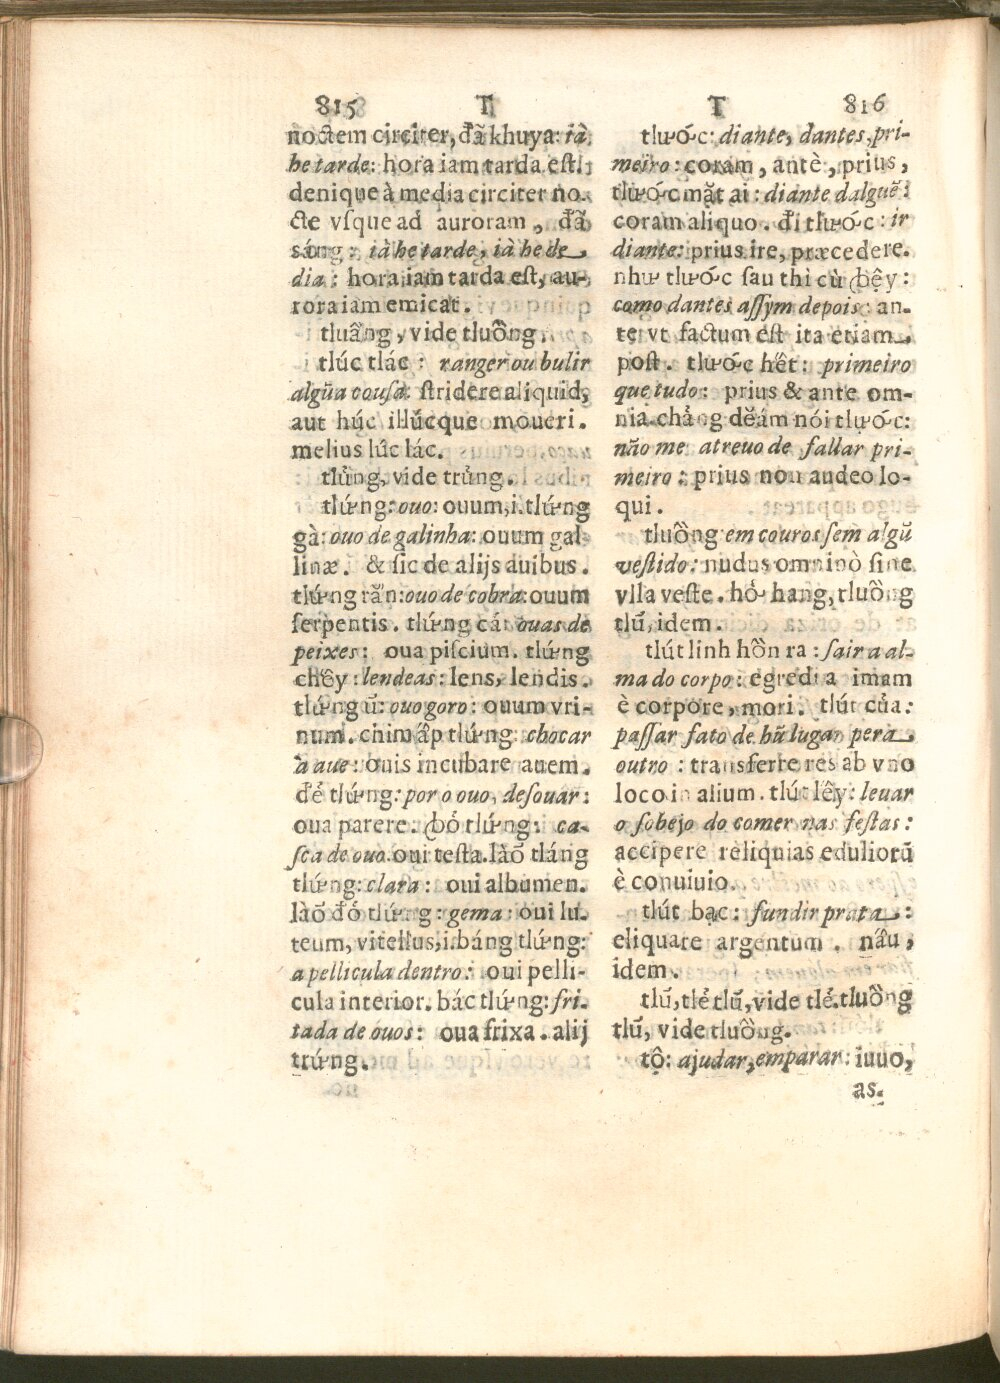 815 T
noctem circiter, đã khuya: ià
he tarde: hora iam tarda est.
denique à media circiter no.
cte vsque ad auroram, đã
sáng: ià he tarde, ià he de
dia: hora iam tarda est, au-
rora iam emicat.
tluẫng, vide tluồng.
tlúc tlác: ranger ou bulir
algũa cousa: stridere aliquid,
aut húc illúcque moueri.
melius lúc lác.
tlủng, vide trủng.
tlứng: ouo: ouum, i. tlứng
gà: ouo de galinha: ouum gal-
linæ. & sic de alijs auibus.
tlứng rắn: ouo de cobra: ouum
serpentis. tlứng cá: ouas de
peixes: oua piscium. tlứng
chếy: lendeas: lens, lendis.
tlứng ũ: ouo goro: ouum vri-
num. chim ấp tlứng: chocar
a aue: ouis incubare auem.
đẻ tlứng: por o ouo, desouar:
oua parere. ꞗỏ tlứng: ca-
sca de ouo. oui testa. lào᷄ tláng
tlứng: clara: oui albumen.
lào᷄ đỏ tlứng: gema: oui lu-
teum, vitellus, i. báng tlứng:
a pellicula dentro: oui pelli-
cula interior. bác tlứng: fri-
tada de ouos: oua frixa. alij
trứng.
T 816
tlước: diante, dantes, pri-
meiro: coram, antè, prius,
tlước mặt ai: diante dalguẽ:
coram aliquo. đi tlước: ir
diante: prius ire, præcedere.
như tlước sau thì cù ꞗệy:
como dantes assym depois: an-
te vt factum est ita etiam
post. tlước hết: primeiro
que tudo: prius & ante om-
nia. chẳng dĕám nói tlước:
não me atreuo de fallar pri-
meiro: prius non audeo lo-
qui.
tluồng em couros sem algũ
vestido: nudus omninò sine
vlla veste. hở hang, tluồng
tlũ, idem.
tlút linh hồn ra: sair a al-
ma do corpo: egredi a imam
è corpore, mori. tlút của:
passar fato de hũ lugar pera
outro: transferre res ab vno
loco in alium. tlút lếy: leuar
o sobejo do comer nas festas:
accipere reliquias eduliorũ
è conuiuio.
tlút bạc: fundir prata:
eliquare argentum. nấu,
idem.
tlũ, tlẻ tlũ, vide tlẻ. tluồng
tlũ, vide tluồng.
tộ: ajudar, emparar: iuuo,
as.